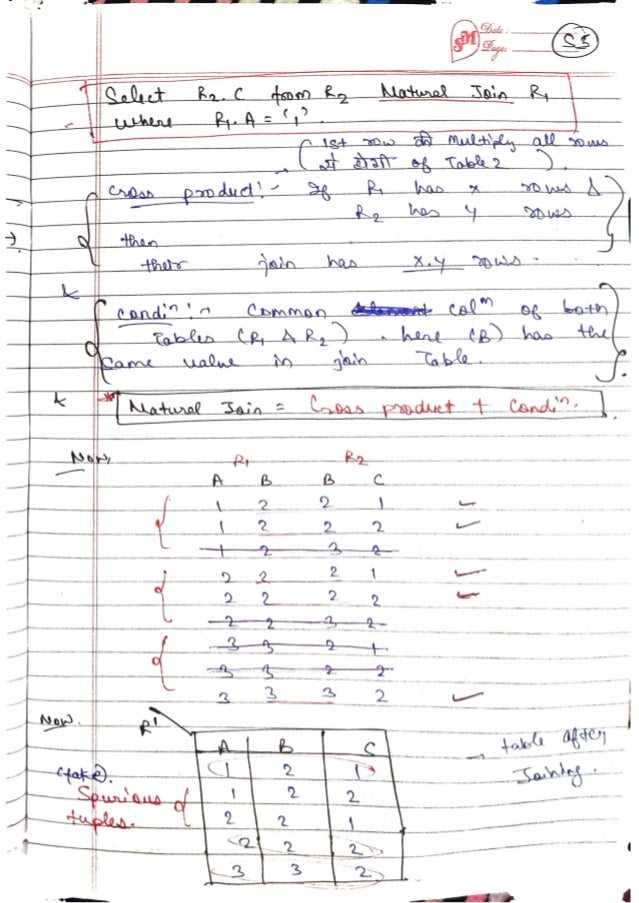 SM
Date:
Page:
53
Select R2.C from R2 Natural Join R1
where R1.A = '1'.
( 1st row की multiply all rows
से होगी of Table 2 ).
Cross product :- If R1 has x rows &
R2 has y rows
then
their join has x.y rows.
Condiⁿ :- Common colᵐ of both
Tables (R1 & R2). here (B) has the
same value in join Table.
* Natural Join = Cross product + Condiⁿ.
Now,
R1 R2
A B B C
1 2 2 1 ✓
1 2 2 2 ✓
1 2 3 2
2 2 2 1 ✓
2 2 2 2 ✓
2 2 3 2
3 3 2 1
3 3 2 2
3 3 3 2 ✓
Now.
R'
A B C
1 2 1
1 2 2
2 2 1
2 2 2
3 3 2
→ table after
Joining.
Spurious
tuples.